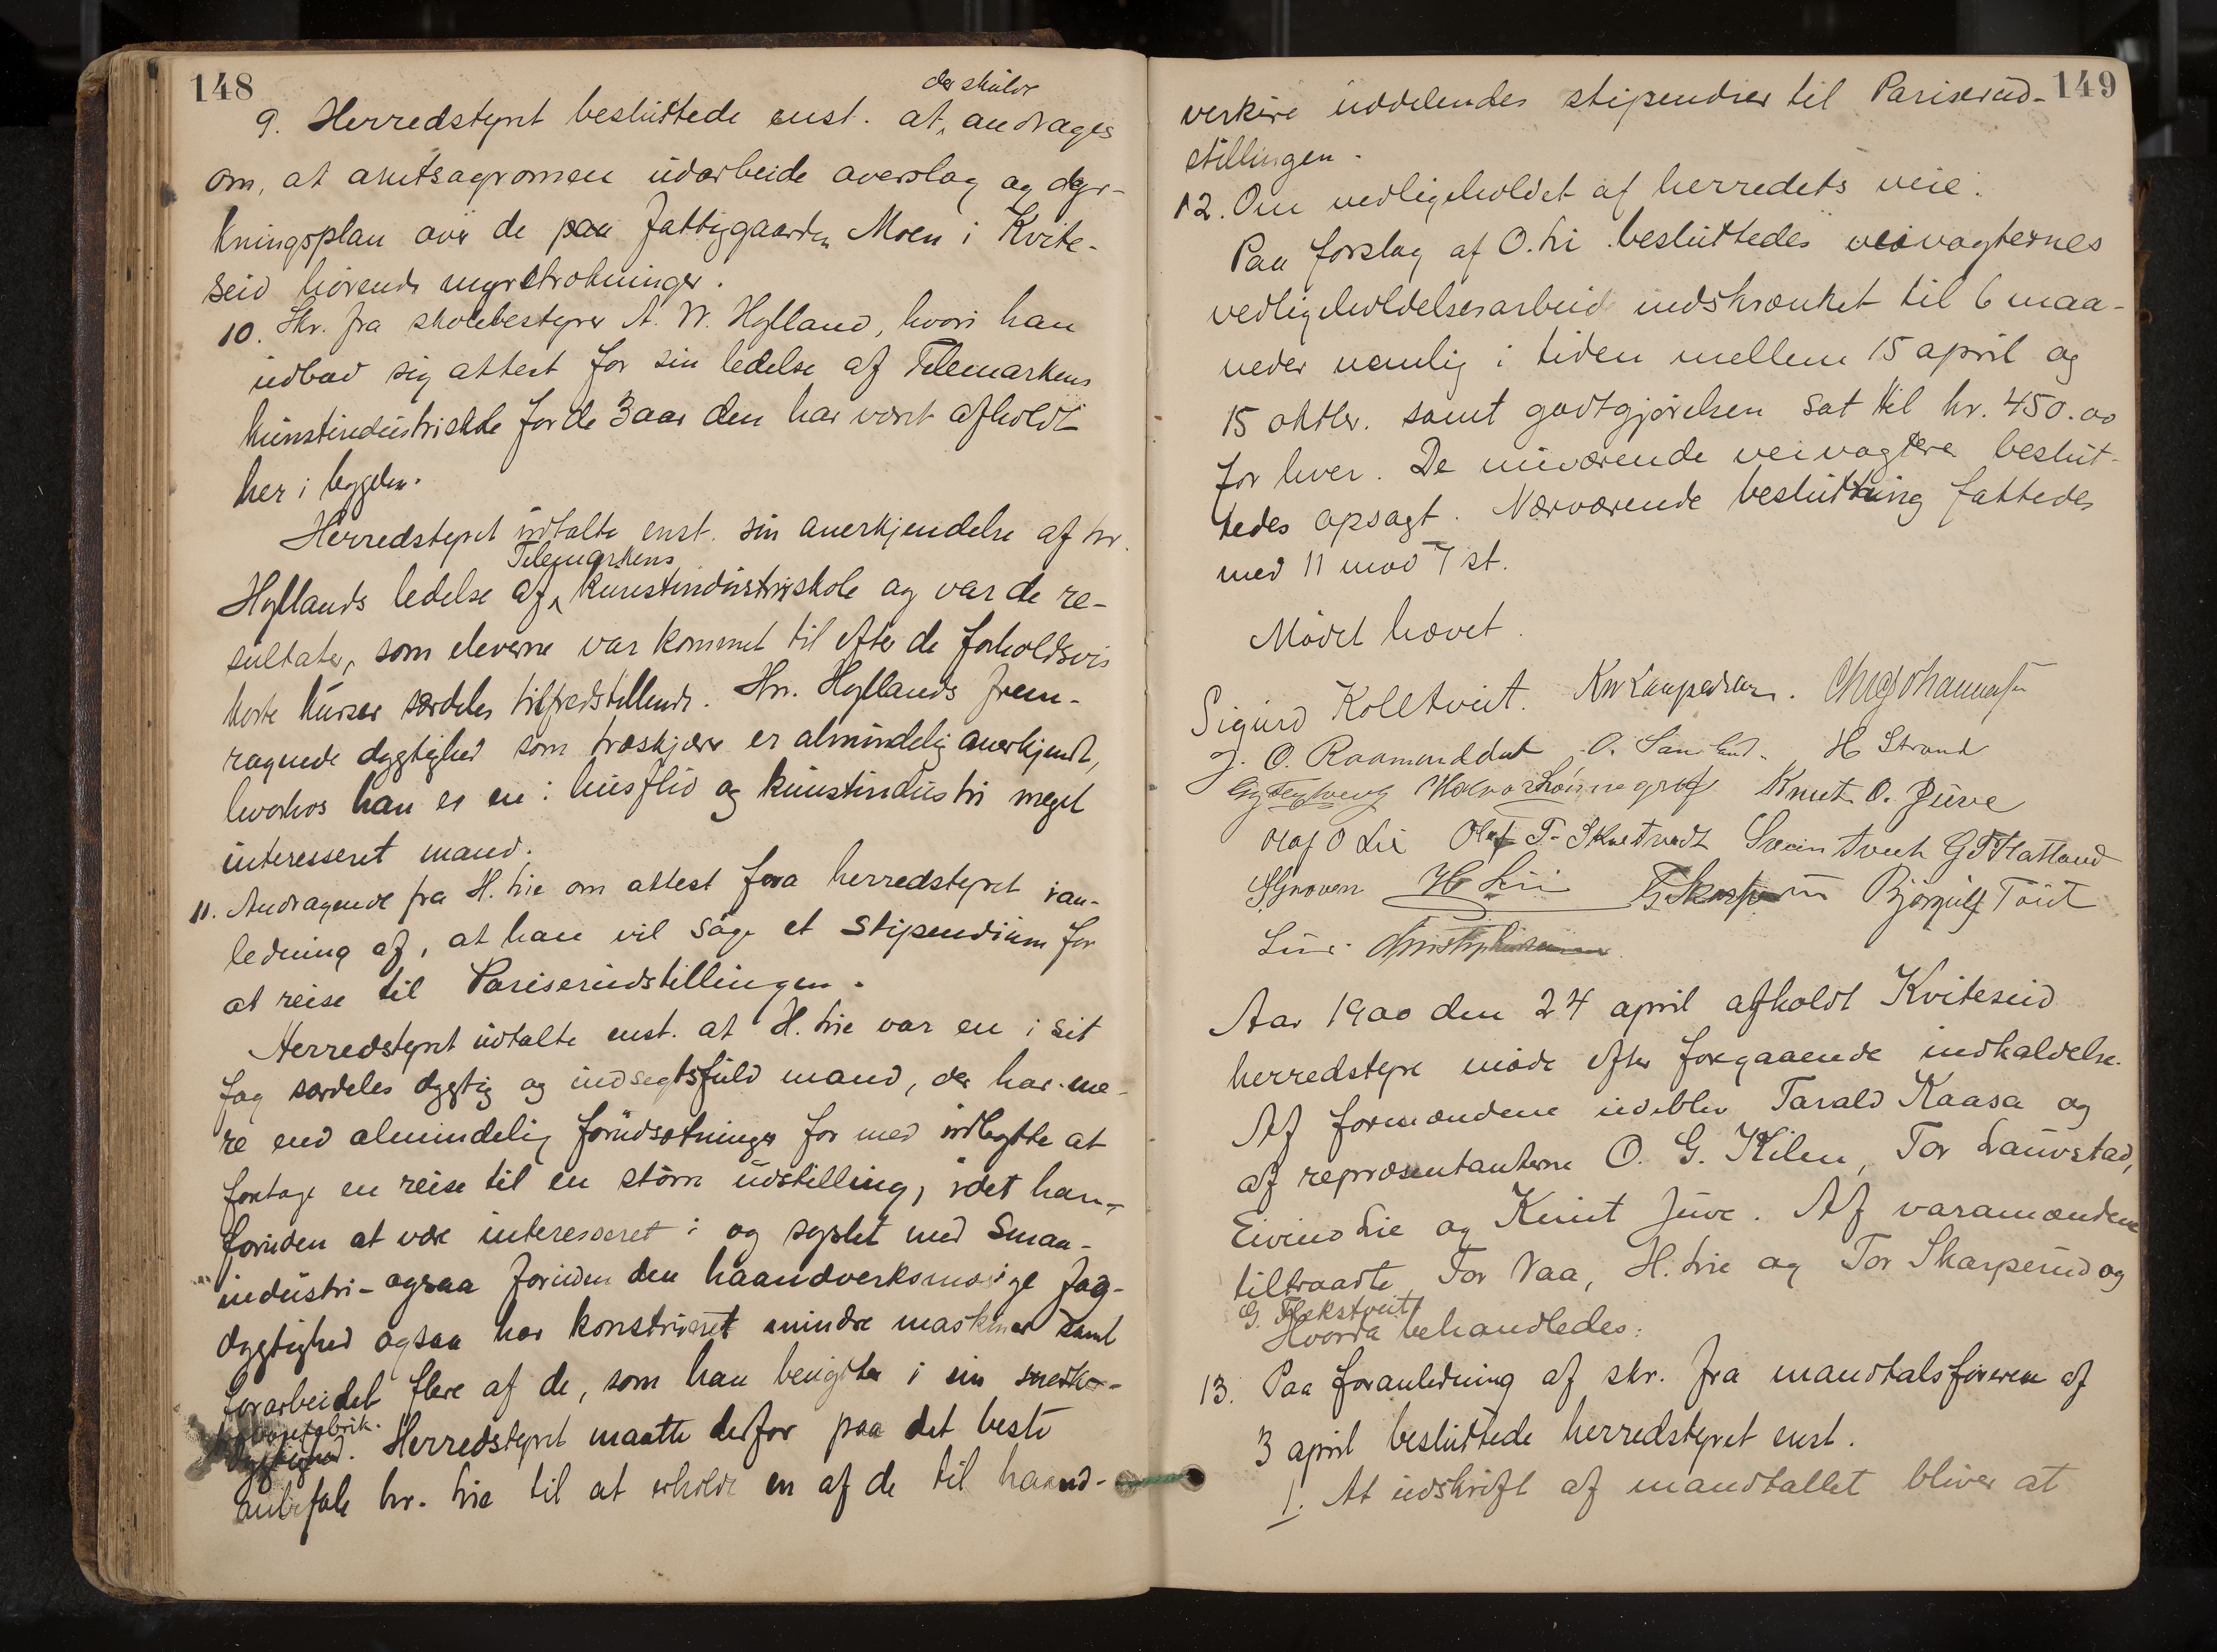 148
der skulde
9. Herredstyret besluttede enst. at, andrages
om, at amtsagromen udarbeide averslag og dyr-
kningsplan over de paa Fattiggaarden Moen i Kvite-
seid hørende myrstrækninger.
10. Skr. fra skolebestyrer A. N. Hylland, hvori han
udbad sig attest for sin ledelse af Telemarkens
kunstindustriskole for de 3 aar den har været afholdt
her i bygden.
Herredstyret udtalte enst. sin anerkjendelse af hr.
Telemarkens
Hyllands ledelse af, kunstindustriskole og var de re-
sultater, som eleverne var kommet til efter de forholdsvis
korte kurser særdeles tilfredstillende. Hr. Hyllands frem-
ragende dygtighed som træskjærer er almindelig anerkjendt,
hvorhos han er en i husflid og kunstindustri meget
interesseret mand.
11. Andragende fra H. Lie om attest fra herredstyret ian-
ledning af, at han vil søge et stipendium for
at reise til Pariserudstillingen.
Herredstyret udtalte enst. at H. Lie var en i sit
fag særdeles dygtig og indsegtsfuld mand, der har me-
re end almindelig forudsætninger for med udbytte at
foretage en reise til en større udstilling, idet han,
foruden at være interesseret i og syslet med smaa-
industri - ogsaa foruden den haandverksmæsige fag-
dygtighed ogsaa har konstrueret mindre maskiner samt
forarbeidet flere af de, som han benytter i sin snedker-
varefabrik.
dygtighed. Herredstyret maatte derfor paa det beste
anbefale hr. Lie til at erholde en af de til haand-
149
verkere uddelendes stipendier til Pariserud-
stillingen.
12. Om vedligeholdet af herredets veie.
Paa forslag af O. Li besluttedes veivogternes
vedligeholdelsesarbeid indskrænket til 6 maa-
neder nemlig i tiden mellem 15 april og
15 oktbr. samt godtgjørelsen sat til kr. 450.00
for hver. De nuværende veivogtere beslut-
tedes opsagt. Nærværende beslutning fattedes
med 11 mod 7 st.
Mødet hævet.
Sigurd Kolltveit.
J. O. Raamunddal O. Sandland. H Strand
Knut O. Juve
Olaf O Lie Olaf T. Svein Tveit G T Flatland
H Lie Bjørgulf Tøit
Aar 1900 den 24 april afholdt Kviteseid
herredstyre møde efter foregaaende indkaldelse.
Af formændene udeblev Tarald Kaasa og
af repræsentanterne O. G. Kilen, Tor Lauvstad,
Eivind Lie og Knut Juve. Af varamændene
tiltraadte Tor Vaa, H. Lie og Tor Skarperud og
G. Flekstveit
Hvorda behandledes:
13. Paa foranledning af skr. fra mandtalsføreren af
3 april besluttede herredstyret enst.
1. At udskrift af mandtallet bliver at